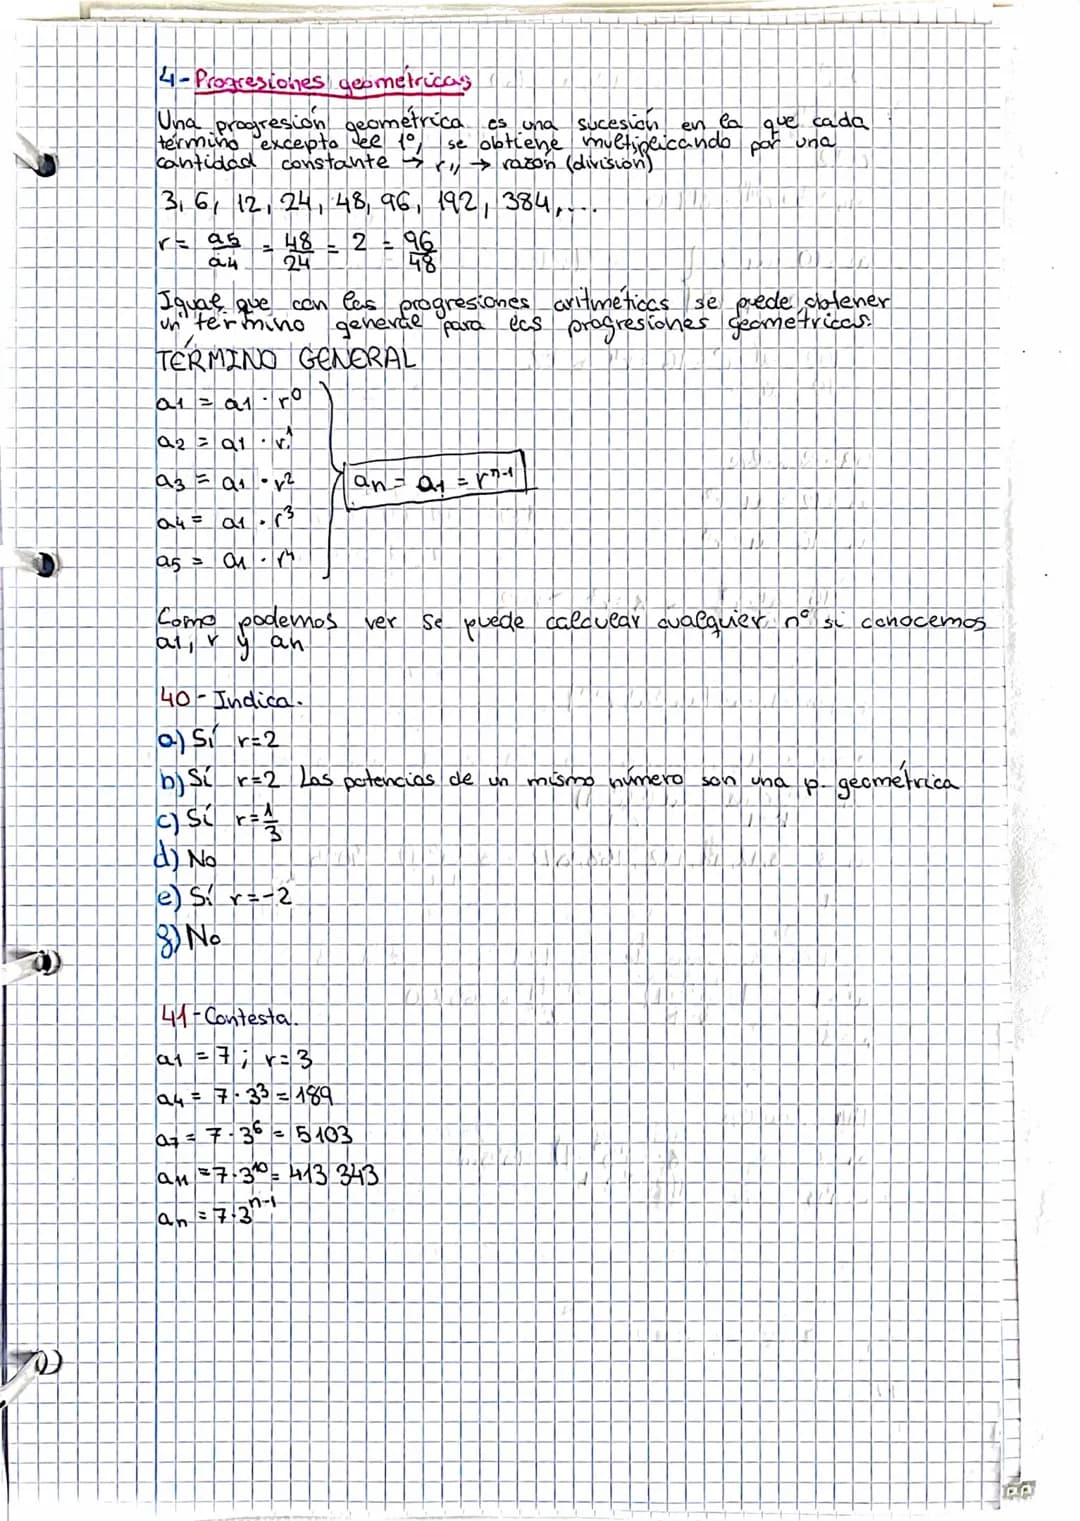 4-Progresiones geométricas
Una progresión geométrica es una sucesión en la que cada
término excepto del 1º, se obtiene multiplicando por una
cantidad constante → r,, → razón (división)
3, 6, 12, 24, 48, 96, 192, 384,...
r = a5/a4 = 48/24 = 2 = 96/48
Igual que con las progresiones aritméticas se puede obtener
un término general para las progresiones geométricas.
TÉRMINO GENERAL
a1 = a1 · r⁰
a2 = a1 · r¹
a3 = a1 · r²
an = a1 = rⁿ⁻¹
a4 = a1 · r³
a5 = a1 · r⁴
Como podemos ver se puede calcular cualquier nº si conocemos
a1, r y an
40-Indica.
a) Sí r=2
b) Sí r=2 Las potencias de un mismo número son una p. geométrica
c) Sí r=1/3
d) No
e) Sí r=-2
g) No
41-Contesta.
a1 = 7; r=3
a4 = 7·3³ = 189
a7 = 7·3⁶ = 5103
a11 = 7·3¹⁰ = 413 343
an = 7·3ⁿ⁻¹